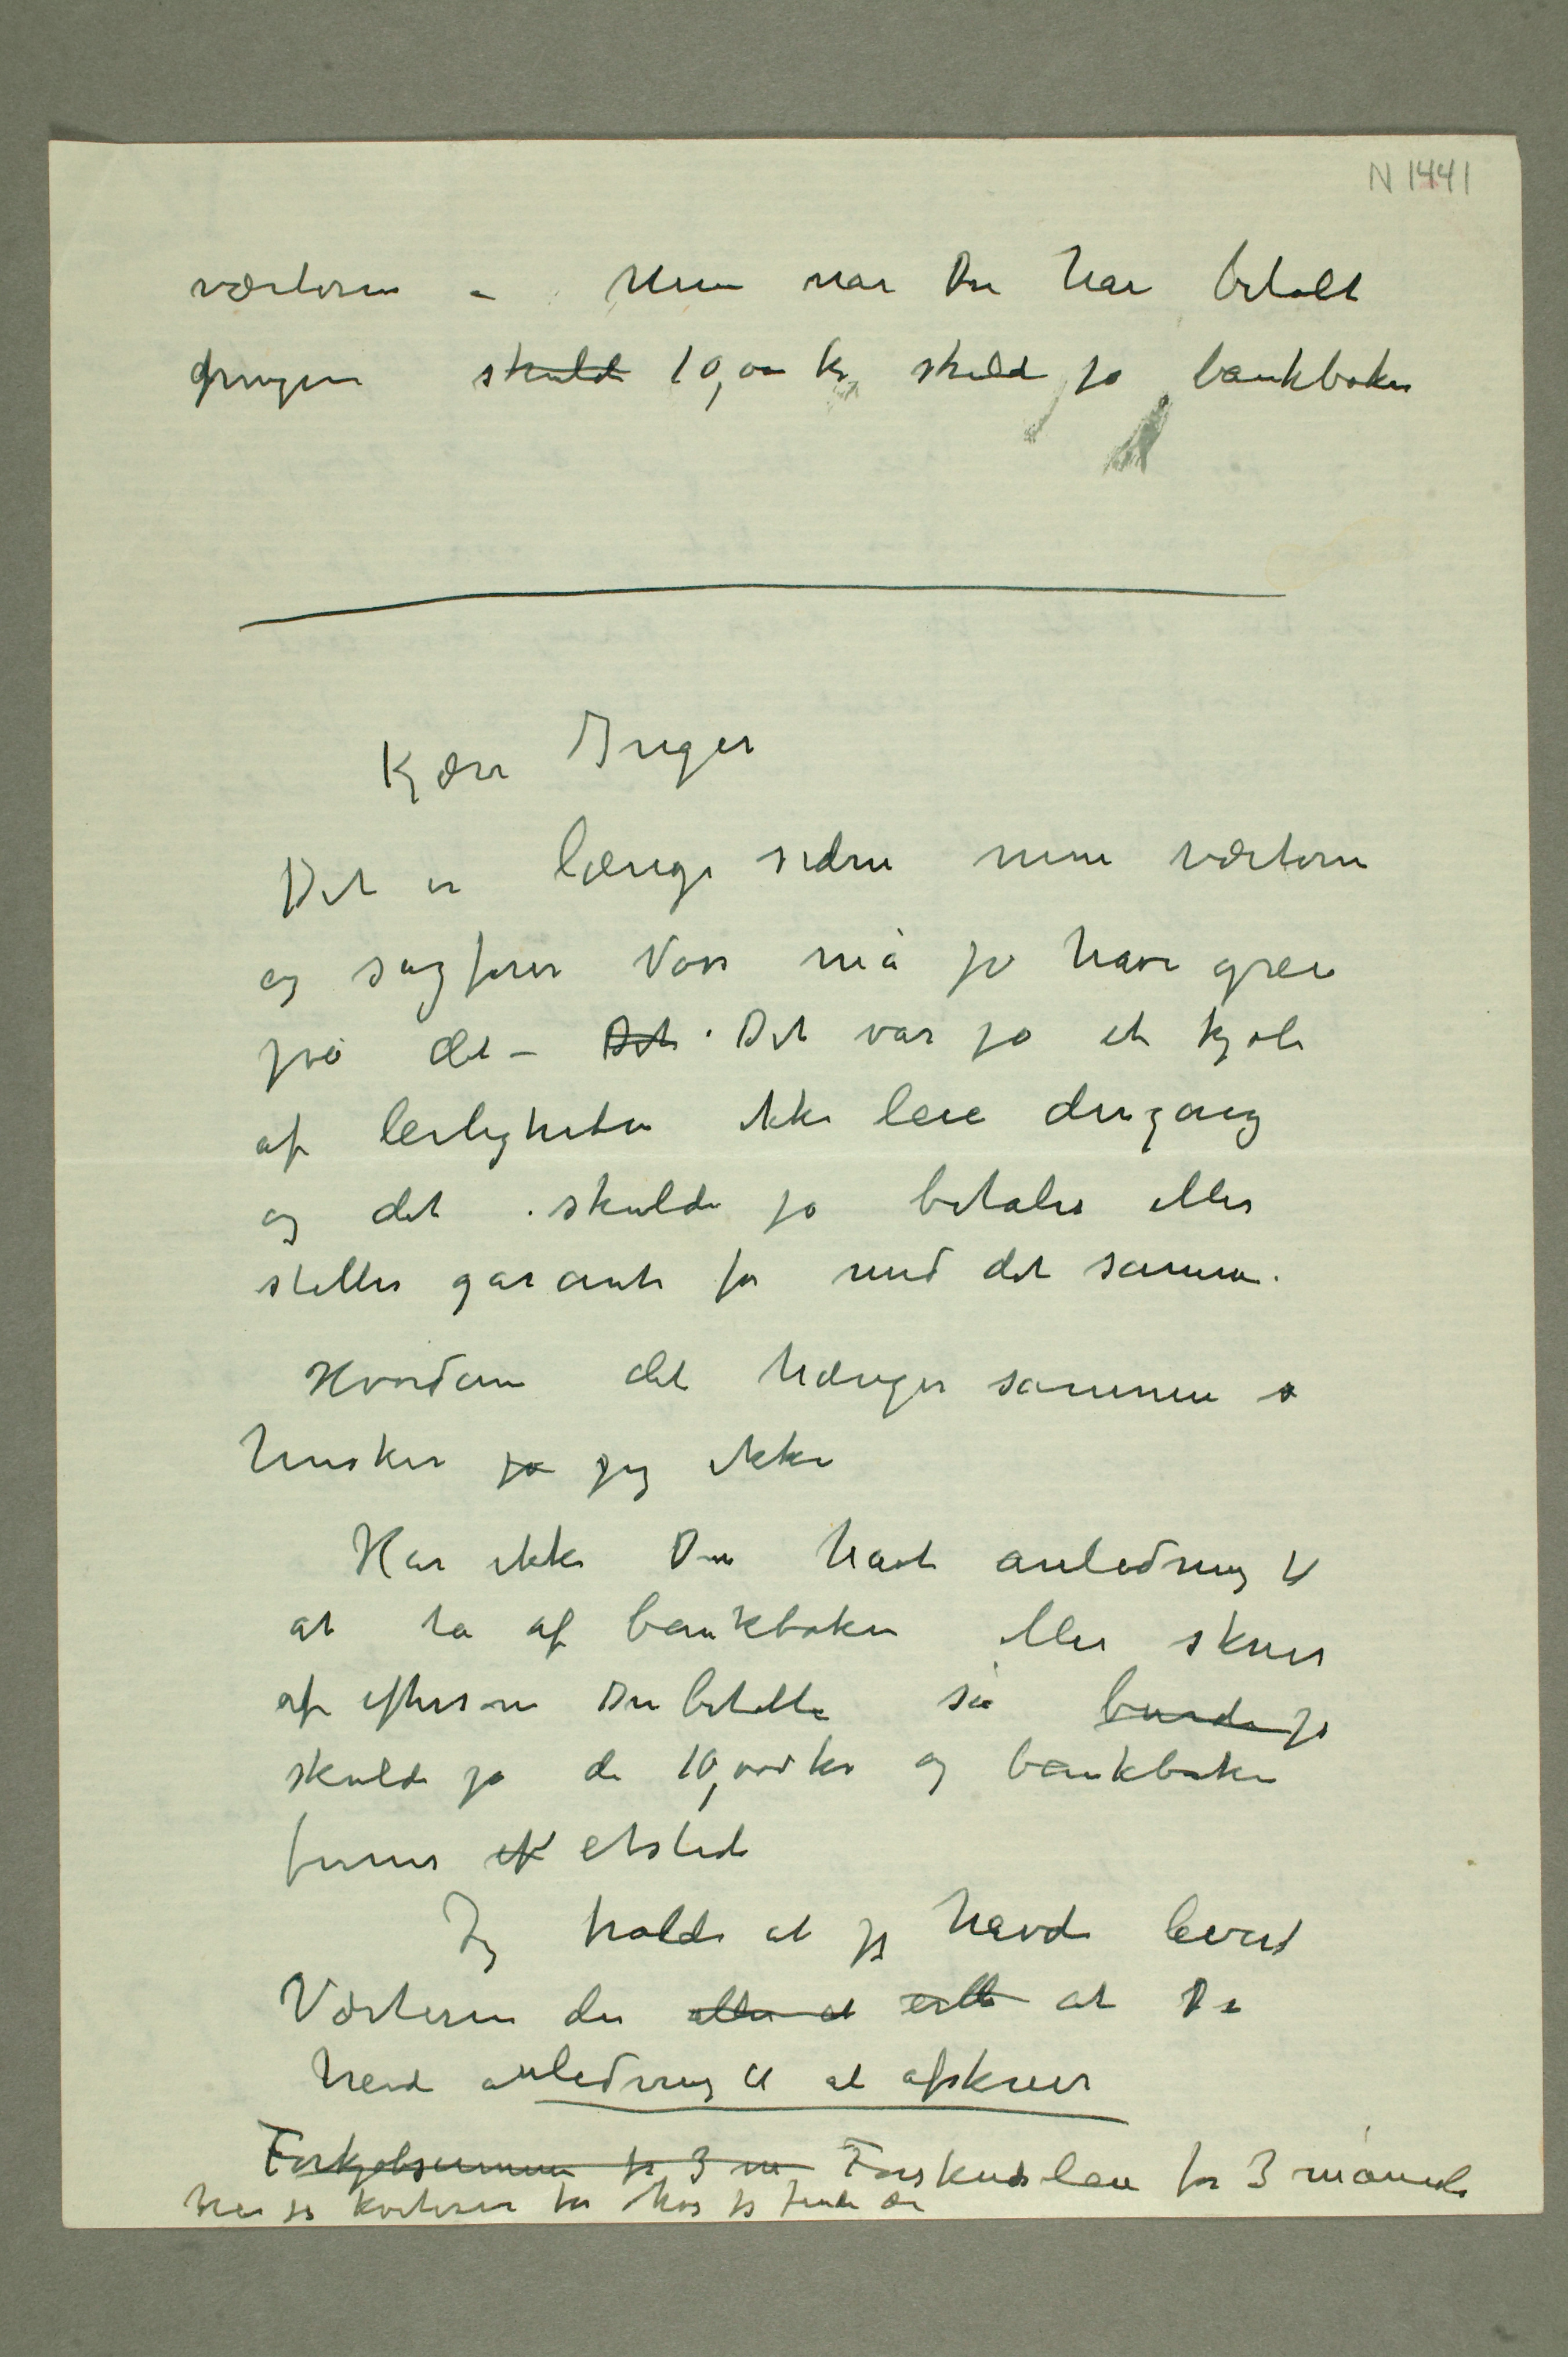 N 1441
værtinen – Men når Du har betalt
pengene skulde 10,000 kr skuld jo bankboken
Kjære Inger
Det er længe siden mine værterne
og sagfører Voss må jo have grei
på det – Det Det var jo et kjøb
af leiligheten ikke leie dengang
og det skulde jo betales eller
stilles garanti for med det samme.
Hvordan det hænger sammen
husker ja jeg ikke
Har ikke Du havt anledning til
at ta af bankboken eller skrive
af eftersom Du betalte så burde jo
skulde jo de 10,000 kr og bankboken
finnes etsteds
Jeg trode at jeg havde levert
Værtinen den eller at at Du
havde anledning til at afskrive
Forkjøbsummen for 3 m Forskudsleie for 3 måneder
har jeg kvittering for